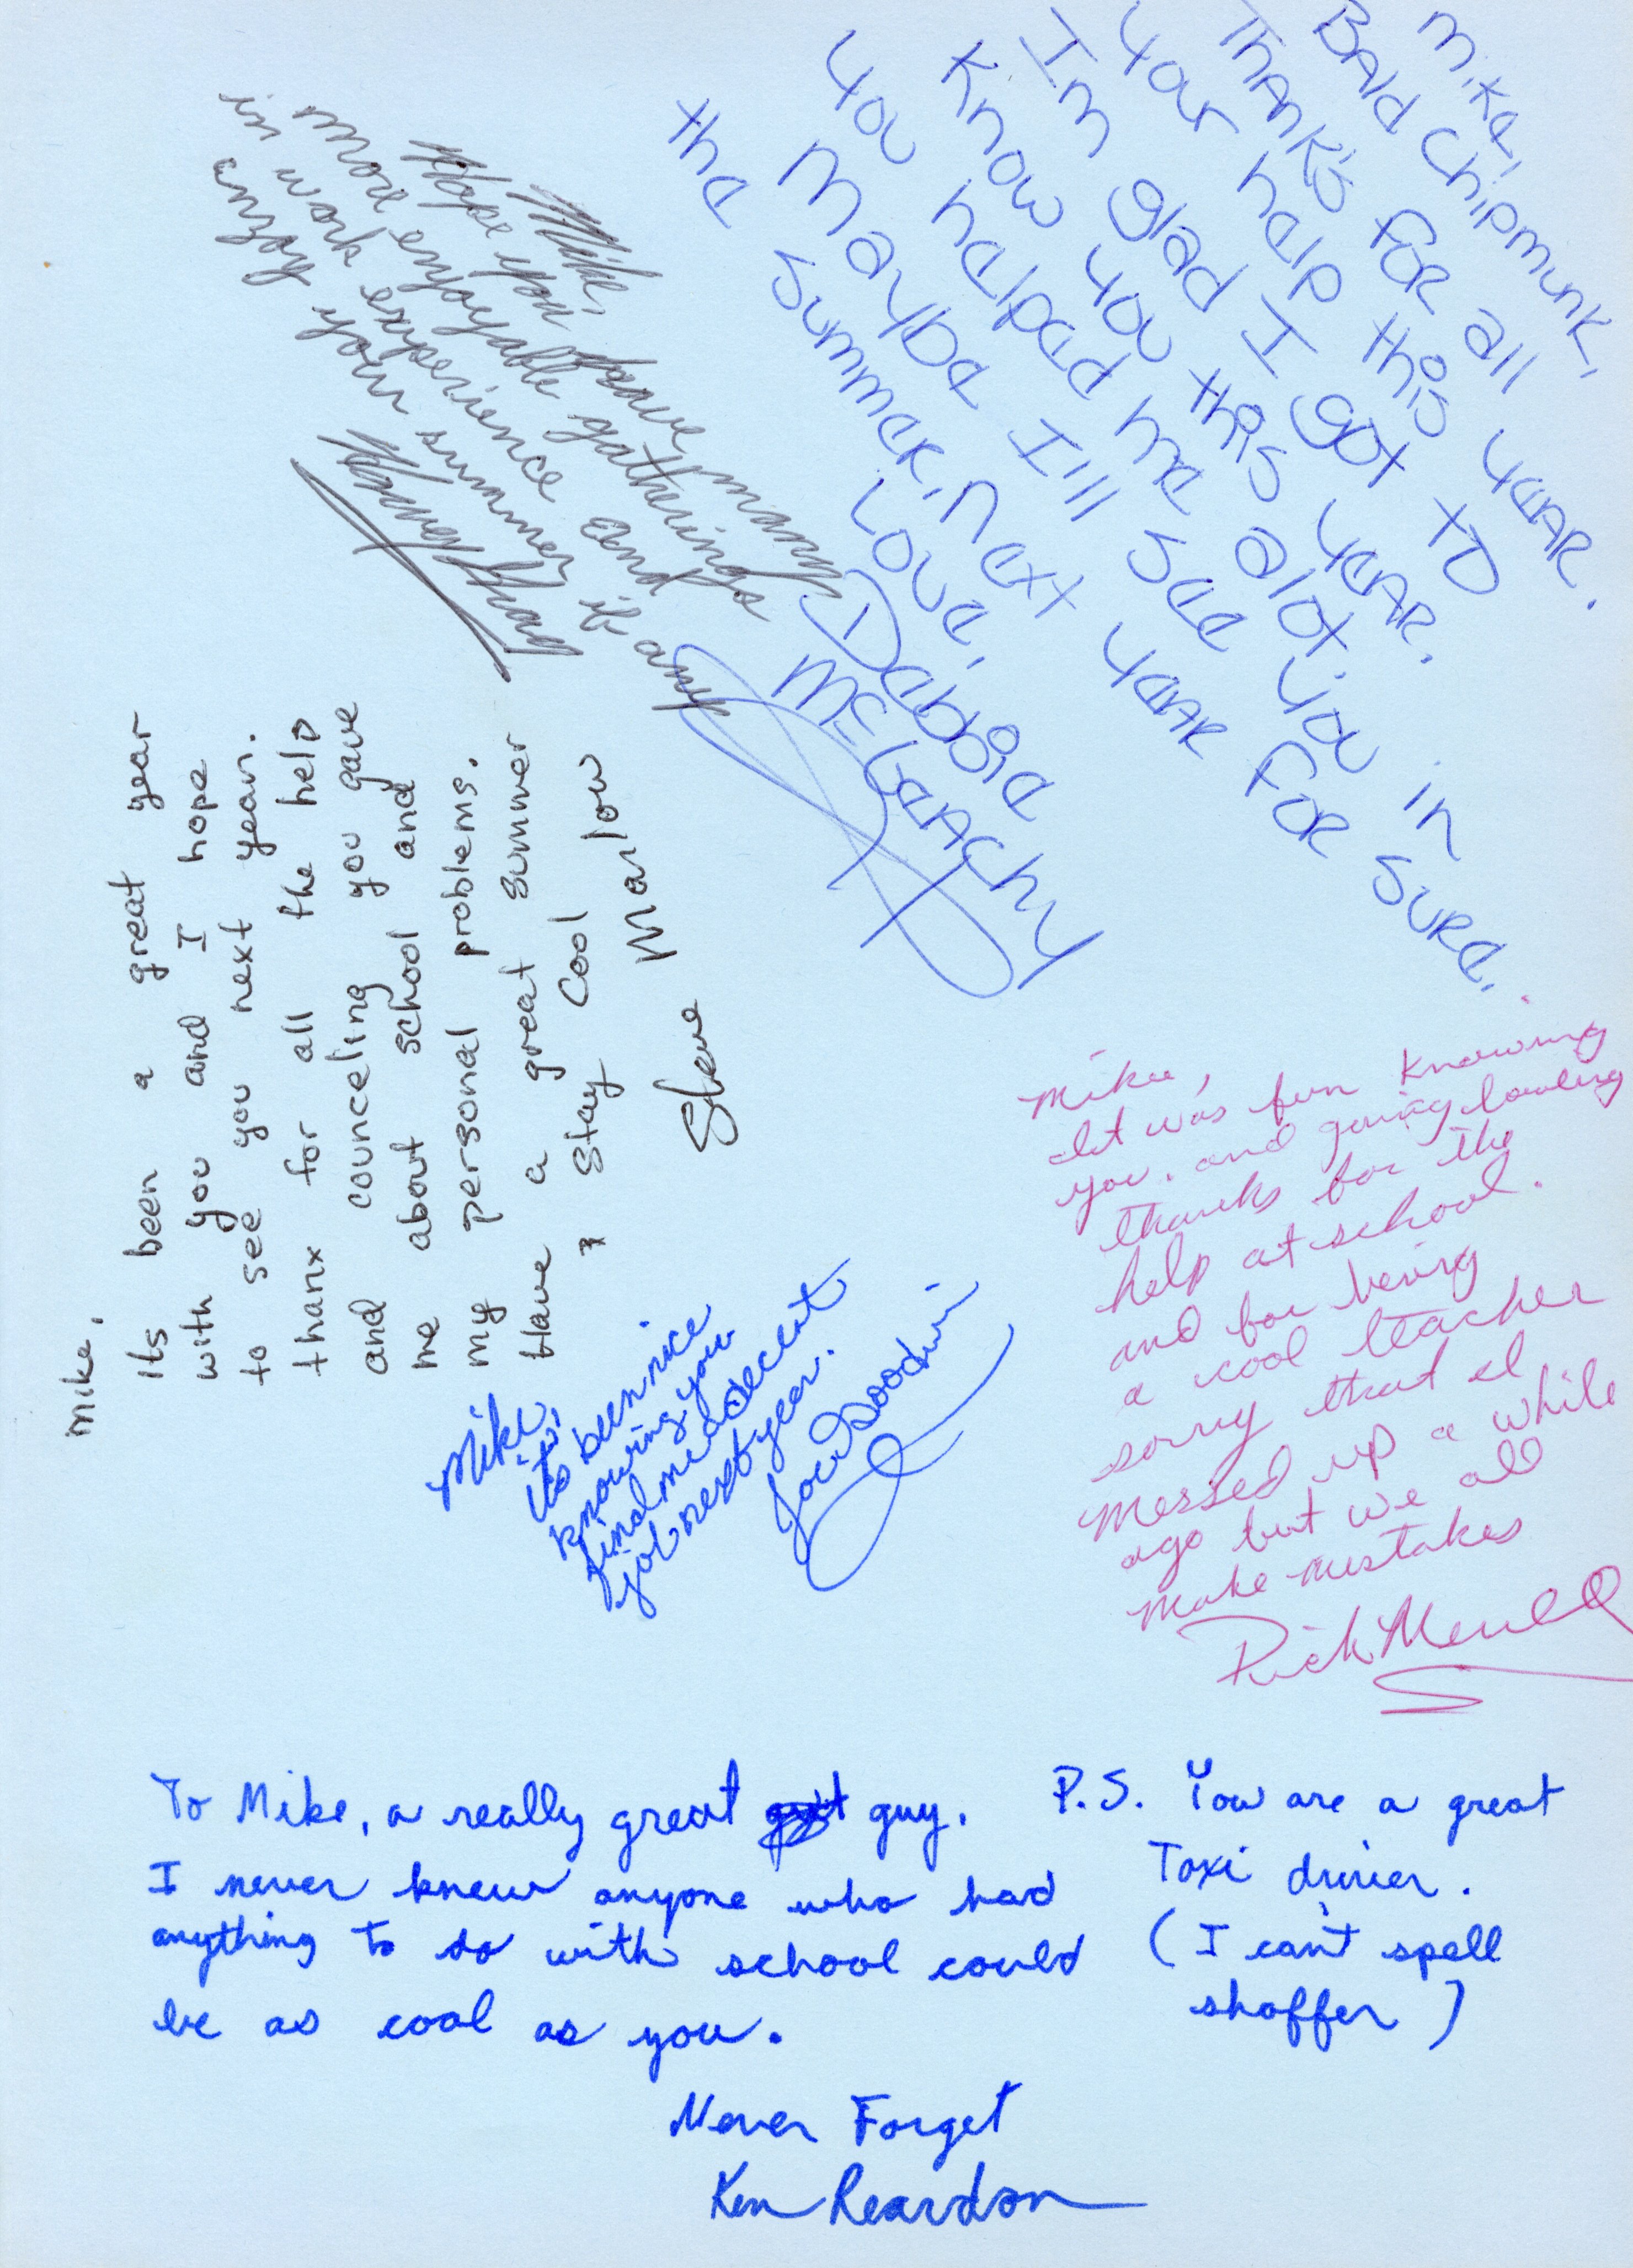 Mike,
Bald Chipmunk,
Thank's for all
your help this year.
Im glad I got to
Know you this year.
You helped me alot.
Maybe I'll see you in
the summer, next year for sure.
Love,
Debbie
McGeachy
Mike,
Hope you have many
more enjoyable gatherings
in work experience and
enjoy your summer if any
Mike,
Its been a great year
with you and I hope
to see you next year.
thanx for all the help
and counceling you gave
me about school and
my personal problems.
Have a great summer
+ Stay Cool
Steve Marlow
Mike,
its' been nice
knowing you
find me a decent
job next year.
Goodwin
Mike,
It was fun knowing
you. and going bowling
thanks for the
help at school.
and for being
a cool teacher
sorry that I
messed up a while
ago but we all
make mistakes
Rick
To Mike, a really great guy.
I never knew anyone who had
anything to do with school could
be as cool as you.
P.S. You are a great
Taxi driver.
(I can't spell
shoffer)
Never Forget
Ken Reardon